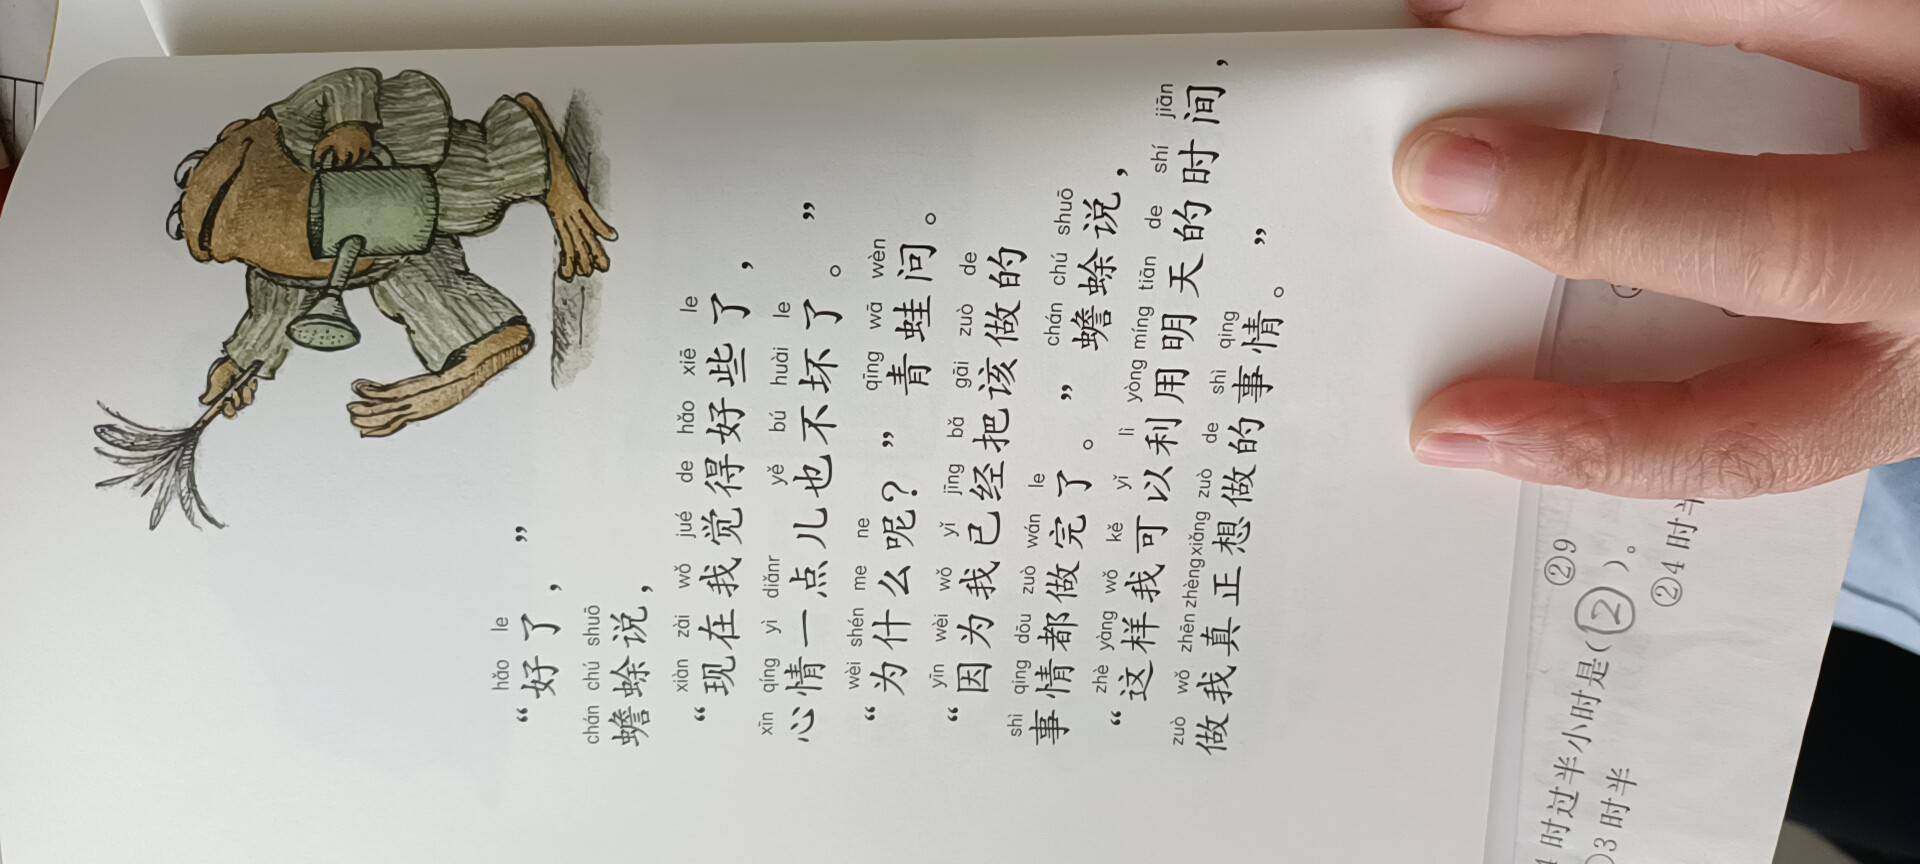 hǎo le
“好了，”
chán chú shuō
蟾蜍说，
xiàn zài wǒ jué de hǎo xiē le
“现在我觉得好些了，
xīn qíng yì diǎnr yě bú huài le
心情一点儿也不坏了。”
wèi shén me ne qīng wā wèn
“为什么呢？”青蛙问。
yīn wèi wǒ yǐ jīng bǎ gāi zuò de
“因为我已经把该做的
shì qing dōu zuò wán le chán chú shuō
事情都做完了。”蟾蜍说，
zhè yàng wǒ kě yǐ lì yòng míng tiān de shí jiān
“这样我可以利用明天的时间，
zuò wǒ zhēn zhèng xiǎng zuò de shì qing
做我真正想做的事情。”
②9
时过半小时是(②)。
3时半
②4时半